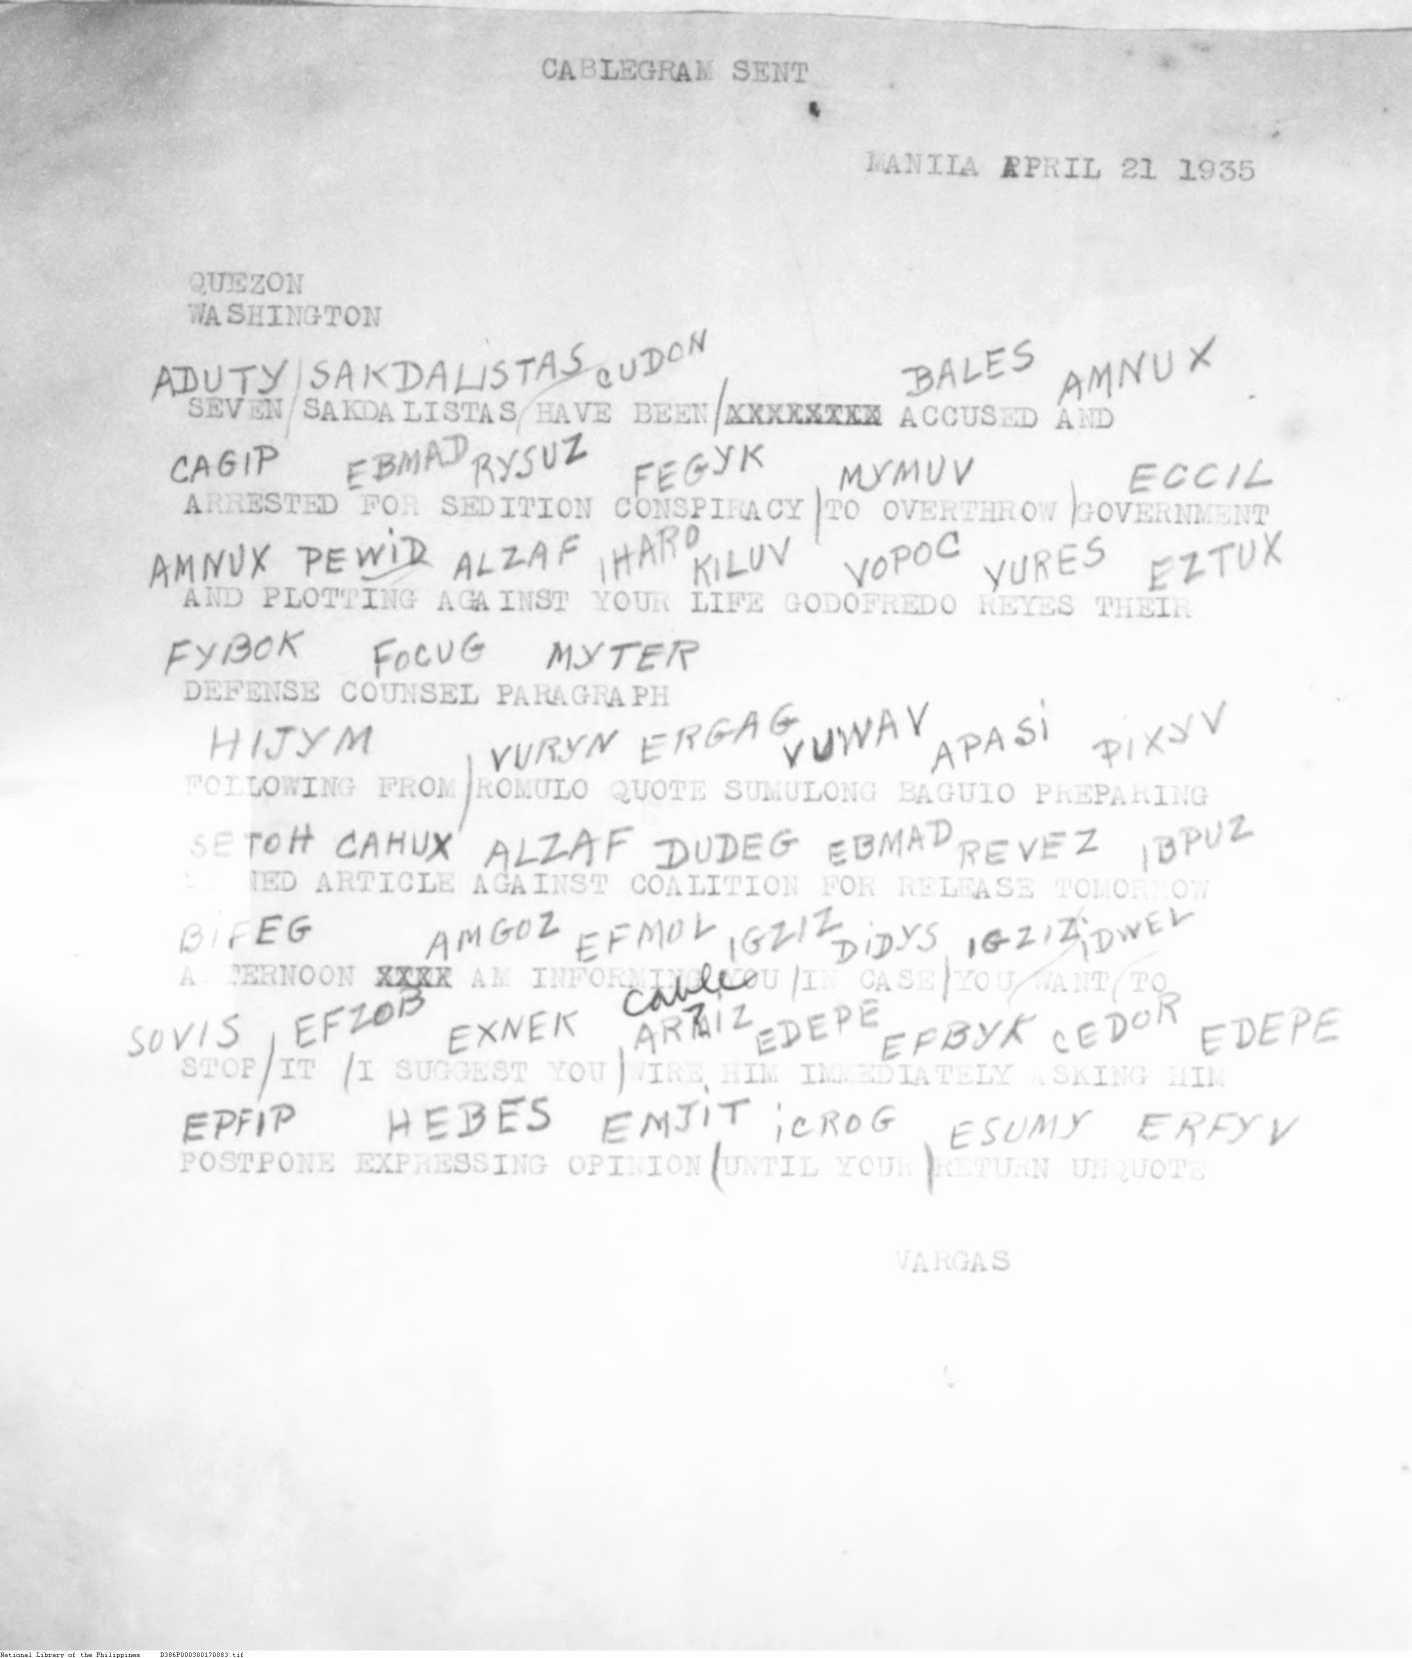 CABLEGRAM SENT
MANILA APRIL 21 1935
QUEZON
WASHINGTON
ADUTY / SAKDALISTAS CUDON BALES AMNUX
SEVEN / SAKDALISTAS / HAVE BEEN / XXXXXXXX ACCUSED AND
CAGIP EBMAD RYSUZ FEGYK MYMUV ECCIL
ARRESTED FOR SEDITION CONSPIRACY / TO OVERTHROW / GOVERNMENT
AMNUX PEWID ALZAF IHARO KILUV VOPOC YURES EZTUX
AND PLOTTING AGAINST YOUR LIFE GODOFREDO REYES THEIR
FYBOK FOCUG MYTER
DEFENSE COUNSEL PARAGRAPH
HIJYM VURYN ERGAG VUWAV APASI PIXYV
FOLLOWING FROM / ROMULO QUOTE SUMULONG BAGUIO PREPARING
SETOH CAHUX ALZAF DUDEG EBMAD REVEZ IBPUZ
NED ARTICLE AGAINST COALITION FOR RELEASE TOMORROW
BIFEG AMGOZ EFMOL IGZIZ DIDYS IGZIZ IDWEL
A TERNOON XXXX AM INFORMING YOU / IN CASE / YOU / WANT / TO
cable
SOVIS EFZOB EXNEK ARZIZ EDEPE EFBYK CEDOR EDEPE
STOP / IT / I SUGGEST YOU / WIRE HIM IMMEDIATELY ASKING HIM
EPFIP HEBES EMJIT ICROG ESUMY ERFYV
POSTPONE EXPRESSING OPINION / UNTIL YOUR / RETURN UNQUOTE
VARGAS
National Library of the Philippines D386P000300170083.tif